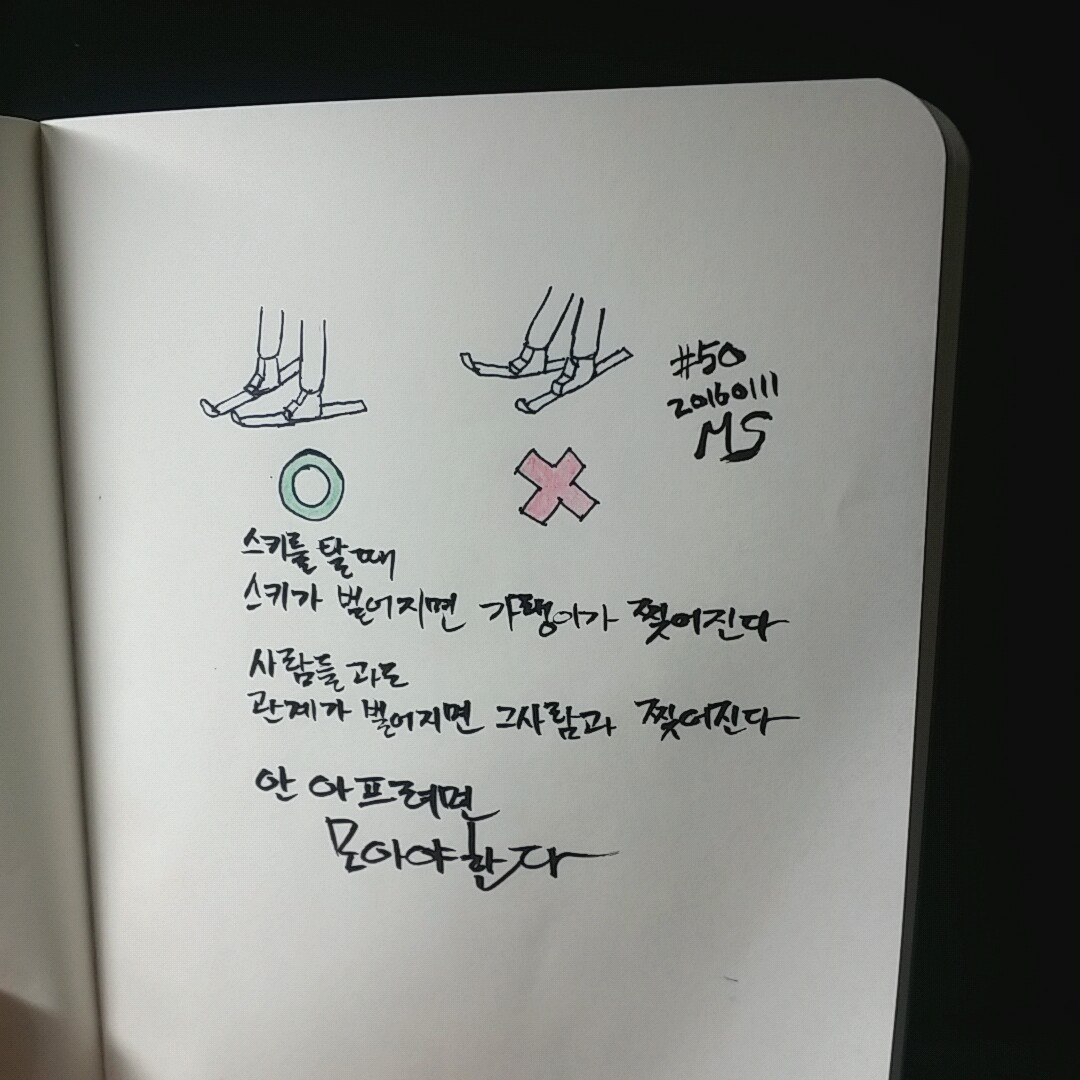 #50
20160111
MS
스키를 탈 때
스키가 벌어지면 가랭이가 찢어진다
사람들과도
관계가 벌어지면 그사람과 찢어진다
안 아프려면
모아야한다